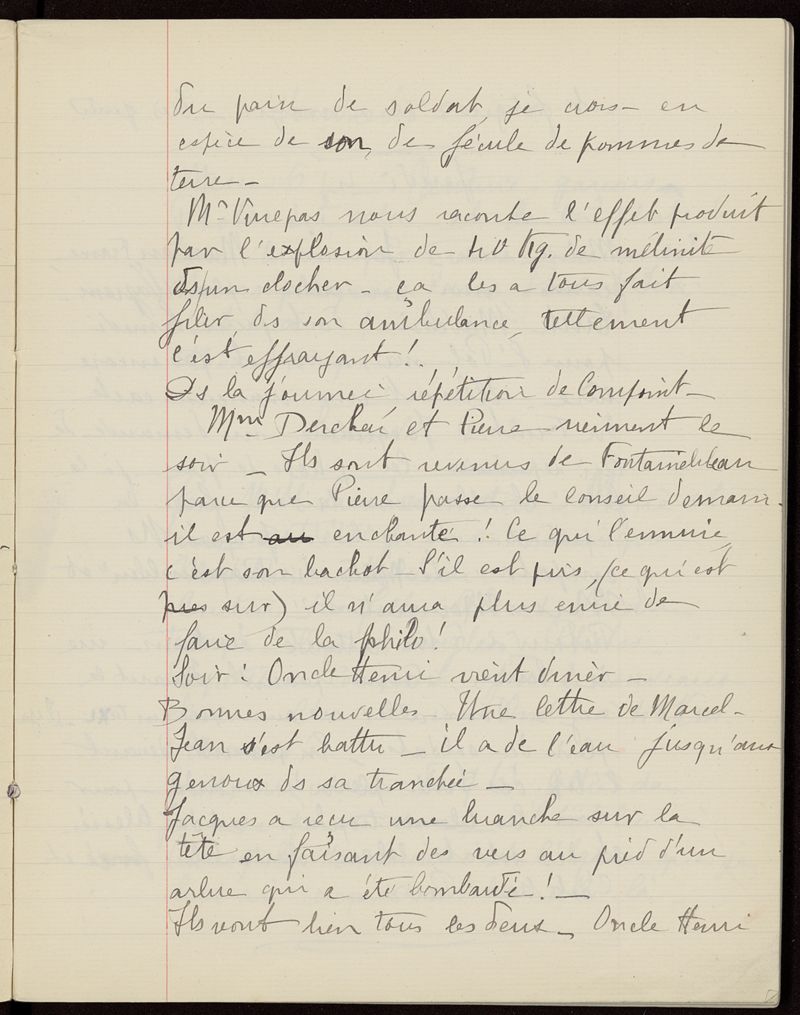 du pain de soldat, je crois - en
espèce de son, de fécule de pommes de
terre -
Mr Vinepas nous raconte l'effet produit
par l'explosion de Kg. de mélinite
ds un clocher - ça les a tous fait
filer, ds son ambulance, tellement
c'est effrayant !..
Ds la journée répétition de Compoint -
Mme et Pierre viennent le
soir - Ils sont revenus de Fontainebleau
parce que Pierre passe le conseil demain -
il est au enchanté ! Ce qui l'ennuie,
c'est son bachot - S'il est pris, (ce qui est
pres sur) il n'aura plus envie de
faire de la philo !
Soir : Oncle Henri vient diner -
Bonnes nouvelles. Une lettre de Marcel -
Jean s'est battu - il a de l'eau jusqu'aux
genoux ds sa tranchée -
Jacques a reçu une branche sur la
tête en faisant des vers au pied d'un
arbre qui a été bombardé ! -
Ils vont bien tous les deux - Oncle Henri